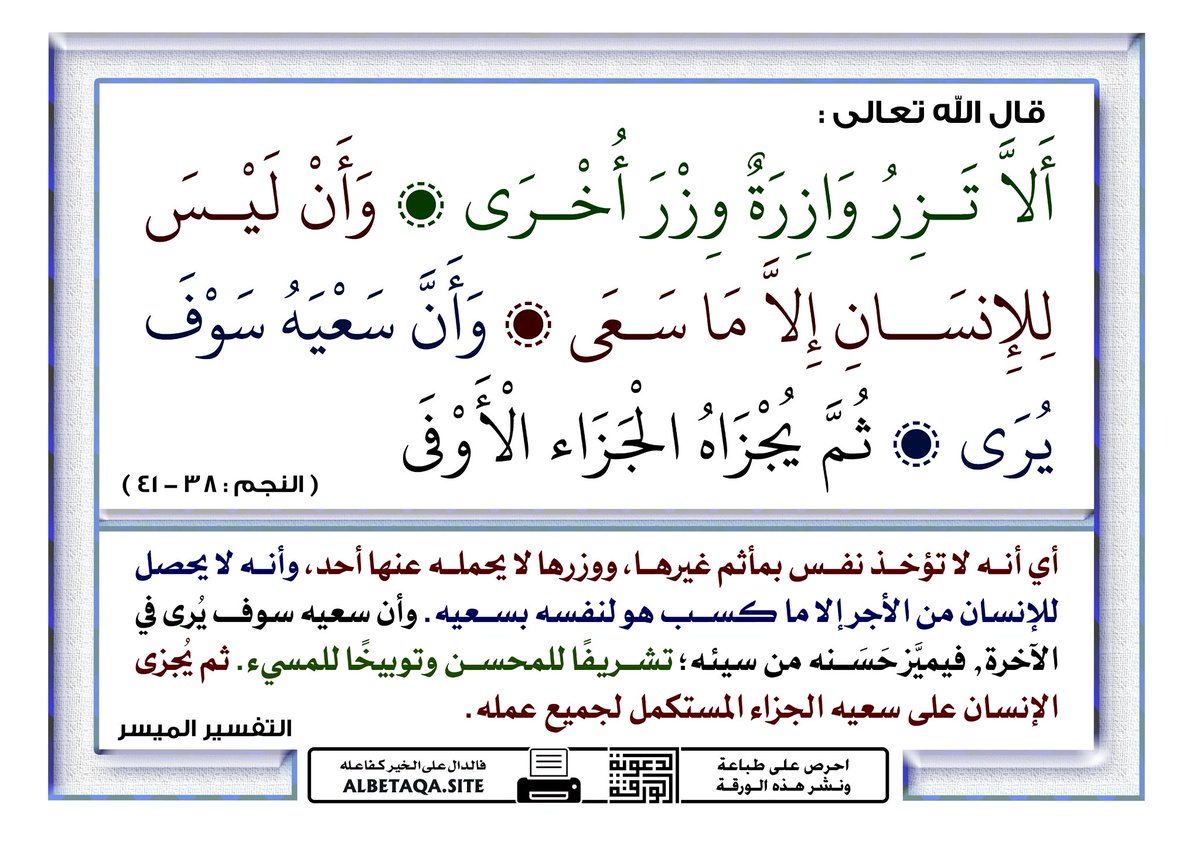 قال الله تعالى :
أَلاَّ تَـزِرُ وَازِرَةٌ وِزْرَ أُخْـرَى وَأَنْ لَيْـسَ
لِلإِنسَـانِ إِلاَّ مَا سَـعَى وَأَنَّ سَعْيَهُ سَوْفَ
يُرَى ثُمَّ يُجْزَاهُ الْجَزَاء الْأَوْفَى
( النجم : ٣٨ - ٤١ )
أي أنـه لا تؤخـذ نفـس بمأثم غيرهـا، ووزرها لا يحملـه عنها أحد، وأنـه لا يحصل
للإنسان من الأجر إلا ما كسـب هو لنفسه بسـعيه. وأن سعيه سوف يُرى في
الآخرة, فيميَّز حَسَنه من سيئه؛ تشـريفًا للمحسـن وتوبيخًا للمسيء. ثم يُجزى
الإنسان على سعيه الجزاء المستكمل لجميع عمله.
التفسير الميسر
احرص على طباعة
ونشر هذه الورقة
الورقة
الدعوية
فالدال على الخير كفاعله
ALBETAQA.SITE